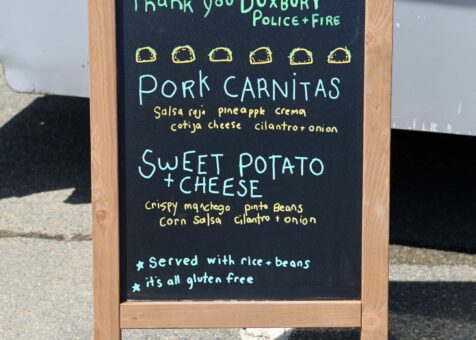 Thank you DUXBURY
POLICE + FIRE
PORK CARNITAS
Salsa rojo pineapple crema
cotija cheese cilantro + onion
SWEET POTATO
+ CHEESE
crispy manchego pinto Beans
corn salsa cilantro + onion
★ served with rice + beans
★ it's all gluten free